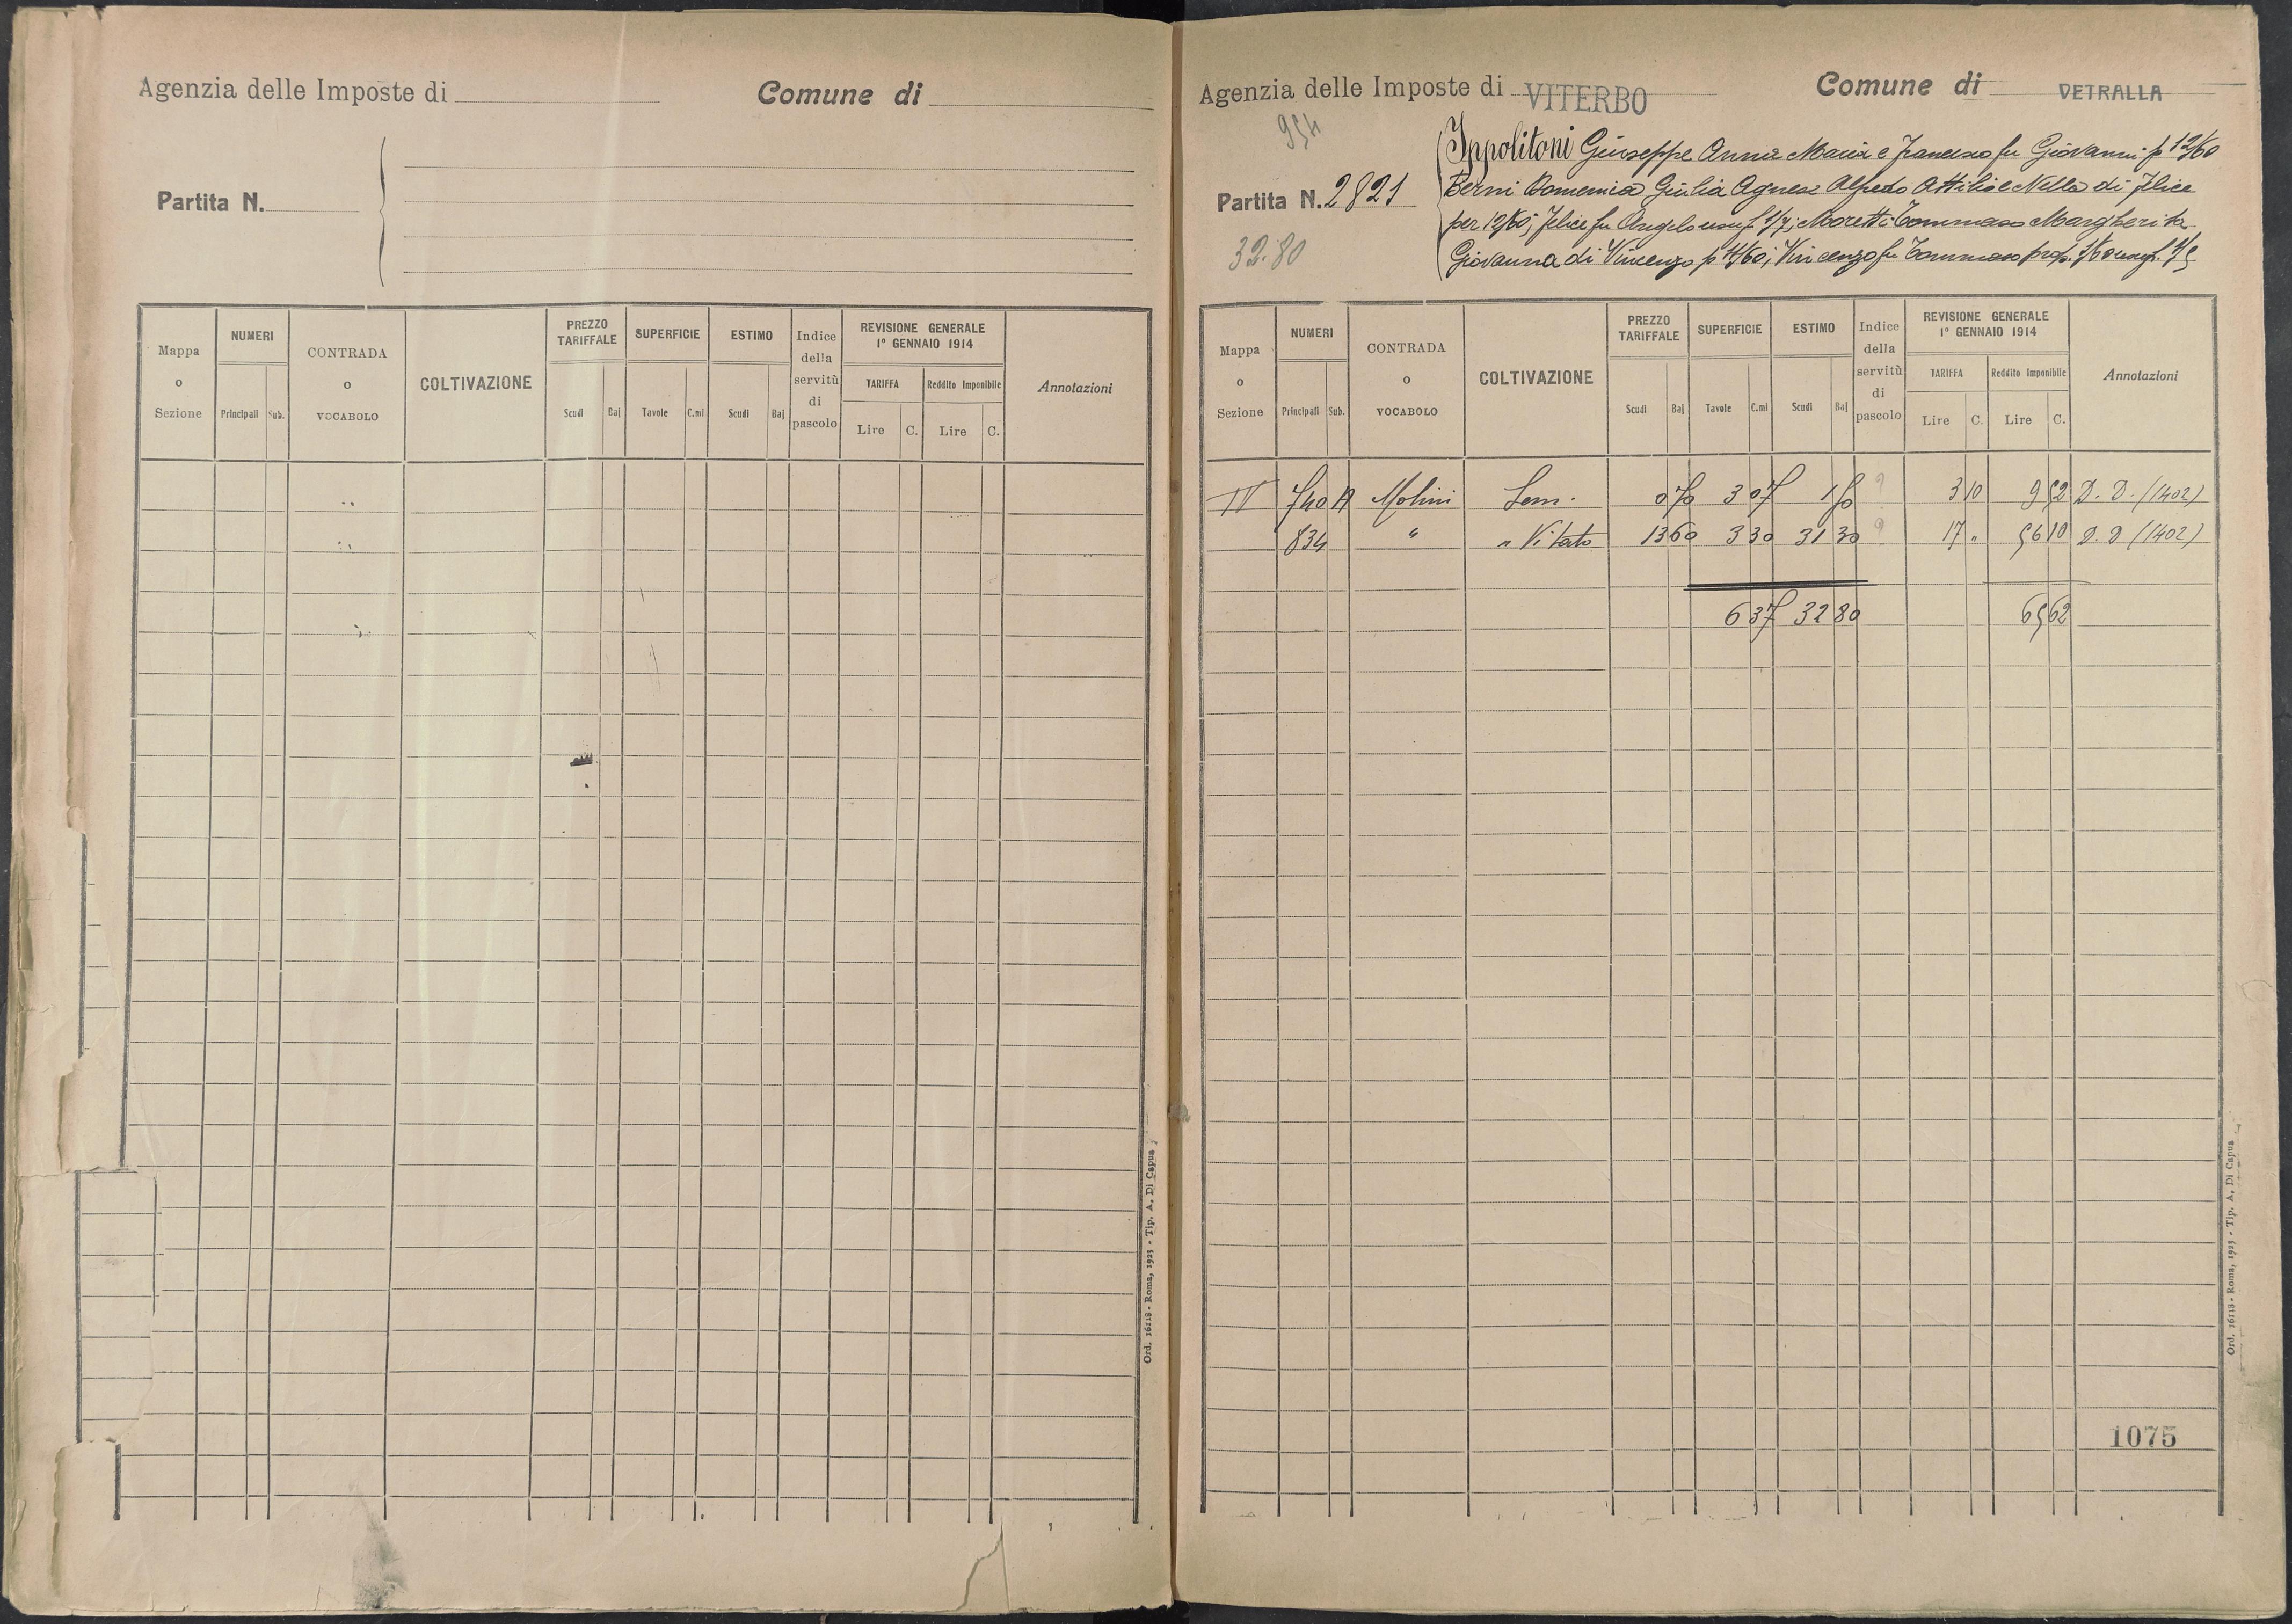 Agenzia delle Imposte di
Comune di
Partita N.
Mappa o Sezione
NUMERI
Principali
Sub.
CONTRADA o VOCABOLO
COLTIVAZIONE
PREZZO TARIFFALE
Scudi
Baj
SUPERFICIE
Tavole
C.mi
ESTIMO
Scudi
Baj
Indice della servitù di pascolo
REVISIONE GENERALE 1° GENNAIO 1914
TARIFFA
Reddito Imponibile
Lire
C.
Lire
C.
Annotazioni
Ord. 16118 - Roma, 1923 - Tip. A. Di Capua
Agenzia delle Imposte di VITERBO
Comune di VETRALLA
954
Partita N. 2821
32.80
Ippolitoni Giuseppe Anna Maria e Francesco fu Giovanni p 12/60
Berni Domenica Giulia Agnese Alfredo Attilio e Nella di Felice
per 12/60; Felice fu Angelo usuf 1/7; Moretti Tommaso Margherita
Giovanna di Vincenzo p 11/60; Vincenzo fu Tommaso prop.
Mappa o Sezione
NUMERI
Principali
Sub.
CONTRADA o VOCABOLO
COLTIVAZIONE
PREZZO TARIFFALE
Scudi
Baj
SUPERFICIE
Tavole
C.mi
ESTIMO
Scudi
Baj
Indice della servitù di pascolo
REVISIONE GENERALE 1° GENNAIO 1914
TARIFFA
Reddito Imponibile
Lire
C.
Lire
C.
Annotazioni
IV 740 A Molini Sem. 0 3 07 1 50 3 10 9 52 D. D. (1402)
834 " " Vitato 13 60 3 30 31 30 17 " 56 10 D. D (1402)
6 37 32 80 65 62
1075
Ord. 16118 - Roma, 1923 - Tip. A. Di Capua